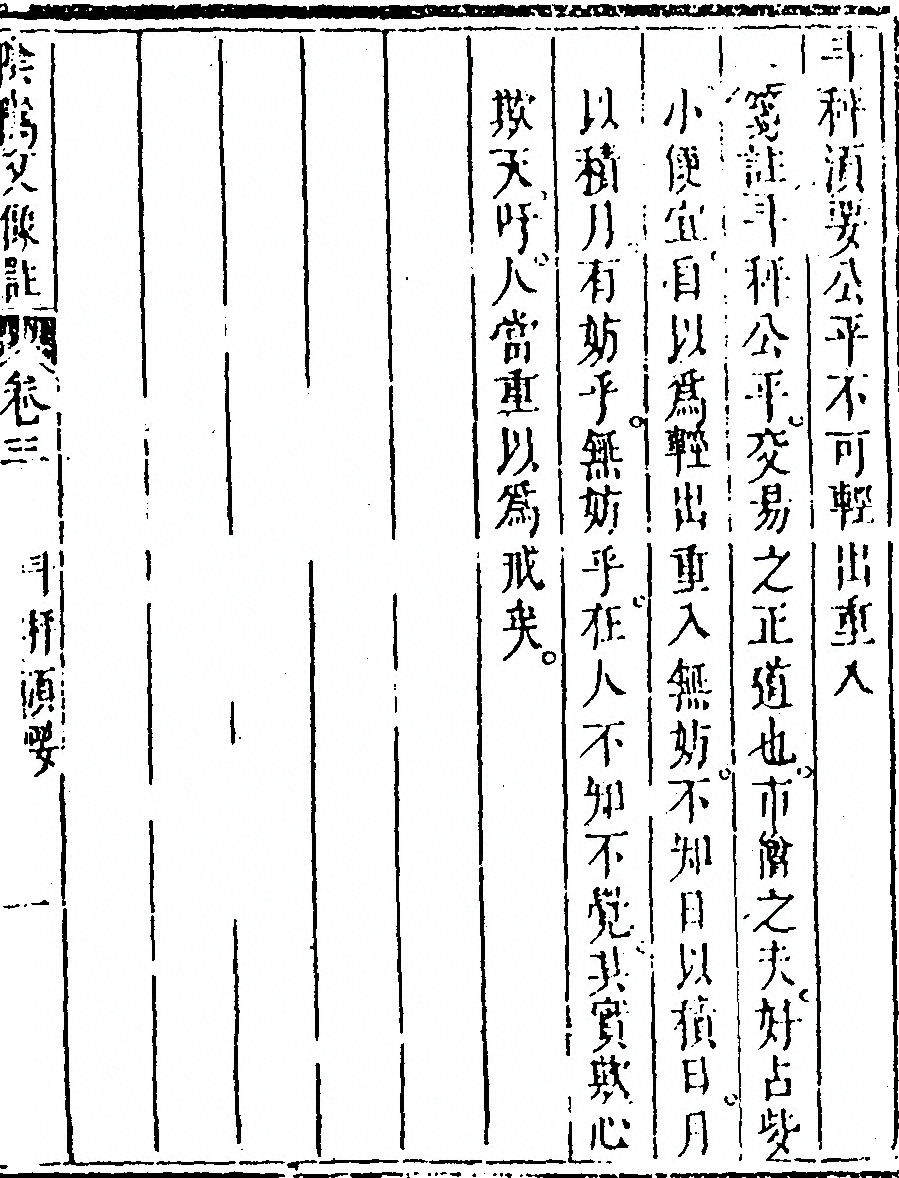 斗秤須要公平不可輕出重入
箋註斗秤公平。交易之正道也。市儈之夫。好占些
小便宜。自以爲輕出重入無妨。不知日以積日。月
以積月。有妨乎。無妨乎。在人不知不覺。其實欺心
欺天。吁。人當重以爲戒矣。
陰騭文像註 卷三 斗秤須要 一